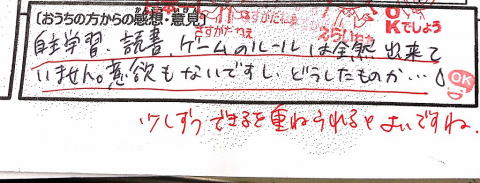 〔おうちの方からの感想・意見〕
さすがだねえ
えらいねえ
OKでしょう
自主学習、読書、ゲームのルールは全然出来て
いません。意欲もないですし、どうしたものか…
OK'D
少しずつできるを重ねられるとよいですね。